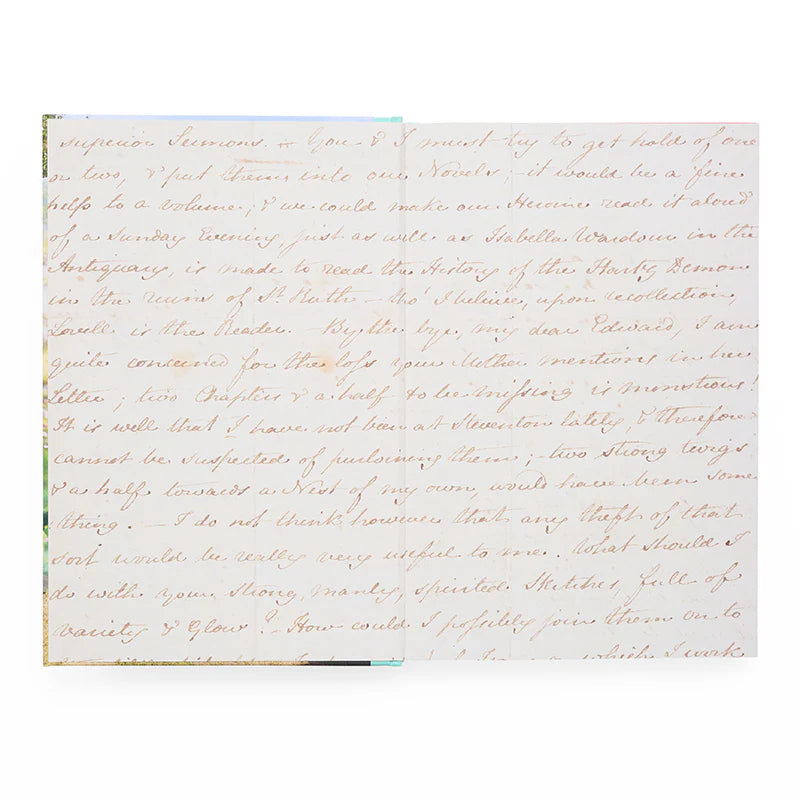 superior Sermons. – You & I must try to get hold of one
or two, & put them into our Novels; – it would be a fine
help to a volume; & we could make our Heroine read it aloud
of a Sunday Evening, just as well as Isabella Wardour in the
Antiquary, is made to read the History of the Hartz Demon
in the ruins of St Ruth – tho' I believe, upon recollection,
Lovell is the Reader. – By the bye, my dear Edward, I am
quite concerned for the loss your Mother mentions in her
Letter; two Chapters & a half to be missing is monstrous!
It is well that I have not been at Steventon lately, & therefore
cannot be suspected of purloining them; – two strong twigs
& a half towards a Nest of my own, would have been some
thing. – I do not think however that any theft of that
sort would be really very useful to me. What should I
do with your strong, manly, spirited Sketches, full of
Variety & Glow? – How could I possibly join them on to
which I work